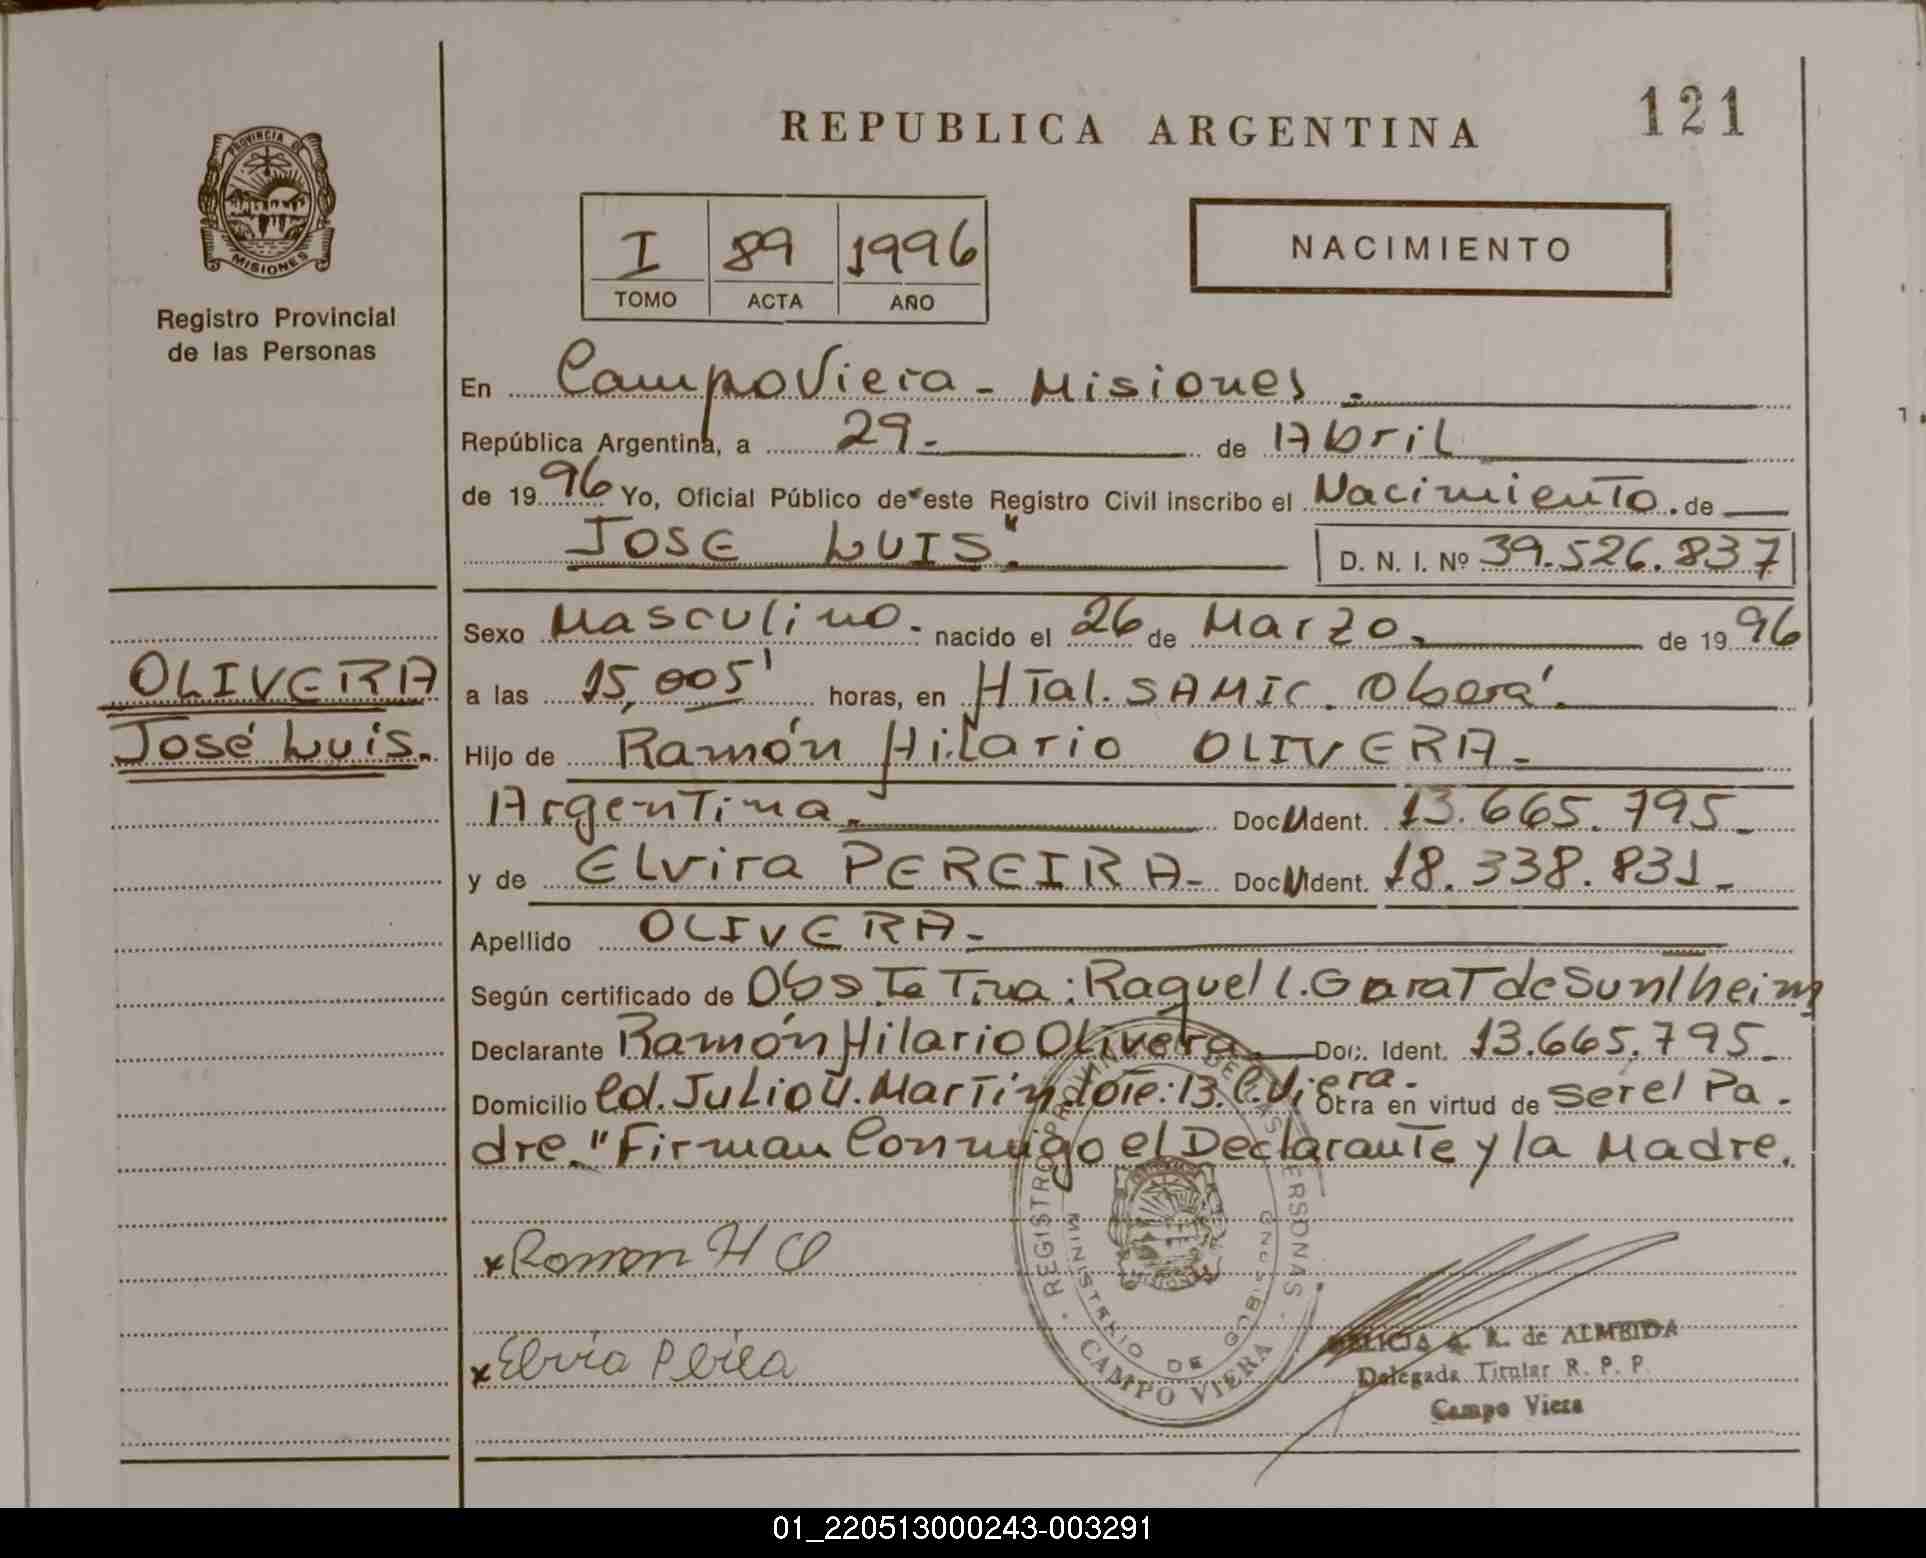 121
REPUBLICA ARGENTINA
PROVINCIA DE
MISIONES
Registro Provincial
de las Personas
I 89 1996
TOMO ACTA AÑO
NACIMIENTO
En Campo Viera - Misiones.
República Argentina, a 29- de Abril
de 1996 Yo, Oficial Público de este Registro Civil inscribo el Nacimiento. de
JOSE LUIS".
D. N. I. Nº 39.526.837
OLIVERA
José Luis.
Sexo Masculino. nacido el 26 de Marzo. de 1996
a las 15,005' horas, en HTal. SAMIC. Oberá.
Hijo de Ramón Hilario OLIVERA-
Argentina. Doc U Ident. 13.665.795-
y de Elvira PEREIRA- Doc U Ident. 18.338.831-
Apellido OLIVERA-
Según certificado de : Raquel l. Garat de
Declarante Ramón Hilario Olivera Doc. Ident. 13.665.795-
Domicilio Cd. Julio U. Martin dote: 13. C. Viera. Otra en virtud de ser el Pa-
dre." Firman Conmigo el Declarante y la Madre.
REGISTRO PROVINCIAL DE LAS PERSONAS
MINISTERIO DE GOBIERNO
CAMPO VIERA
x Ramon H O
x Elvira
A. R. de ALMEIDA
Delegada Titular R. P. P.
Campo Viera
01_220513000243-003291